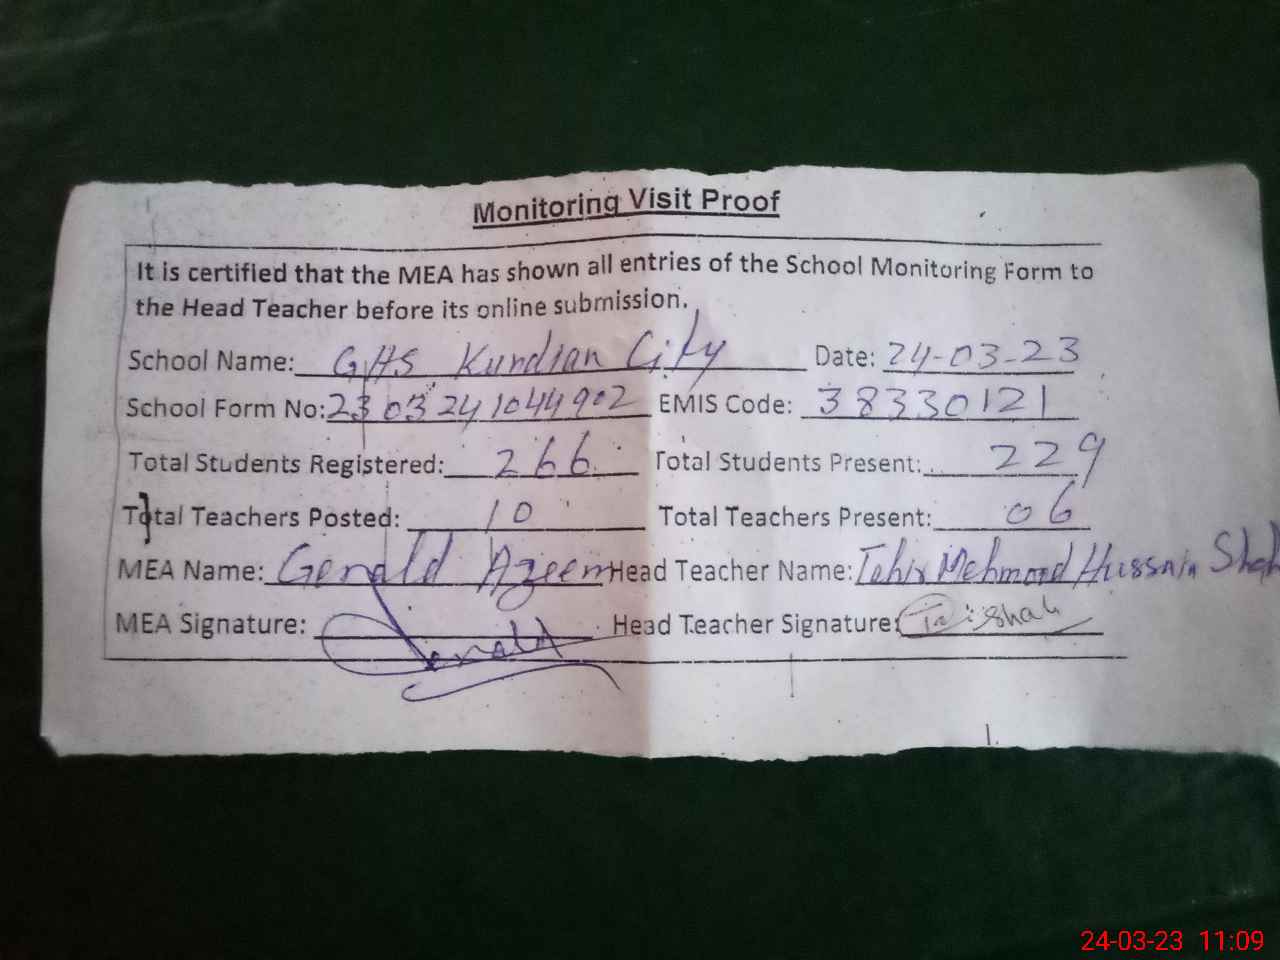 Monitoring Visit Proof
It is certified that the MEA has shown all entries of the School Monitoring Form to
the Head Teacher before its online submission.
School Name: GHS Kundian City Date: 24-03-23
School Form No: 2303241044902 EMIS Code: 38330121
Total Students Registered: 266 Total Students Present: 229
Total Teachers Posted: 10 Total Teachers Present: 06
MEA Name: Gerald Azeem Head Teacher Name: Tahir Mehmood Hussnain Shah
MEA Signature: Gerald Head Teacher Signature: Shah
24-03-23 11:09